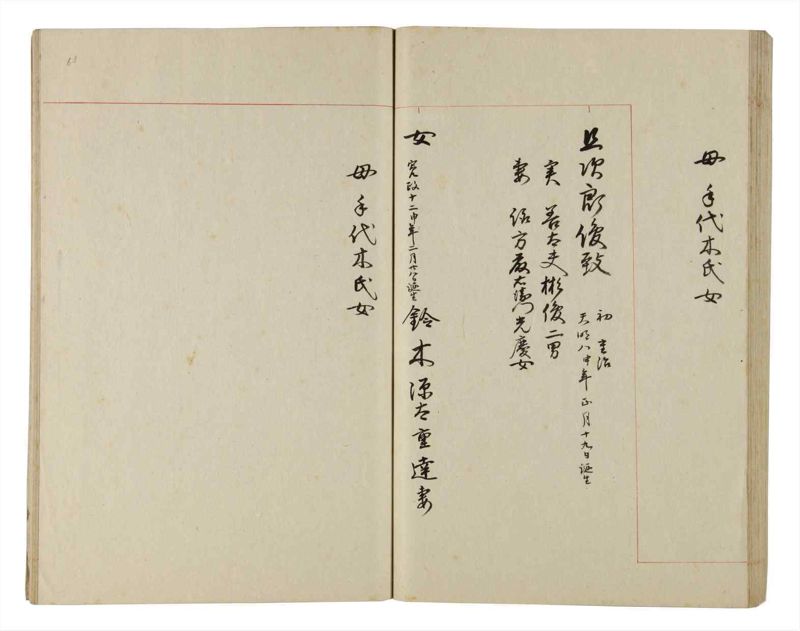 母 手代木氏女
且次郎俊致
初 圭治
天明八申年正月十九日誕生
実 善太夫彬俊二男
妻 緒方長左衛門光慶女
女 寛政十二申年二月廿八日誕生 鈴木源太重達妻
母 手代木氏女